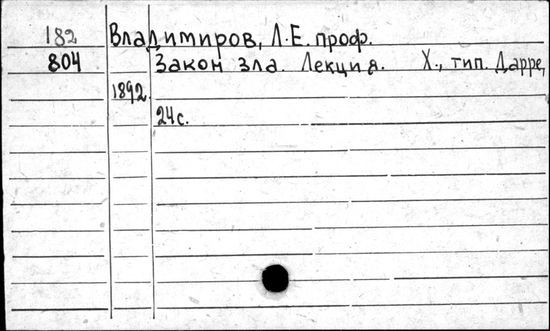 182 Владимиров, Л.Е. проф.
804 Закон зла. Лекция. Х., тип. Дарре,
1892.
24с.